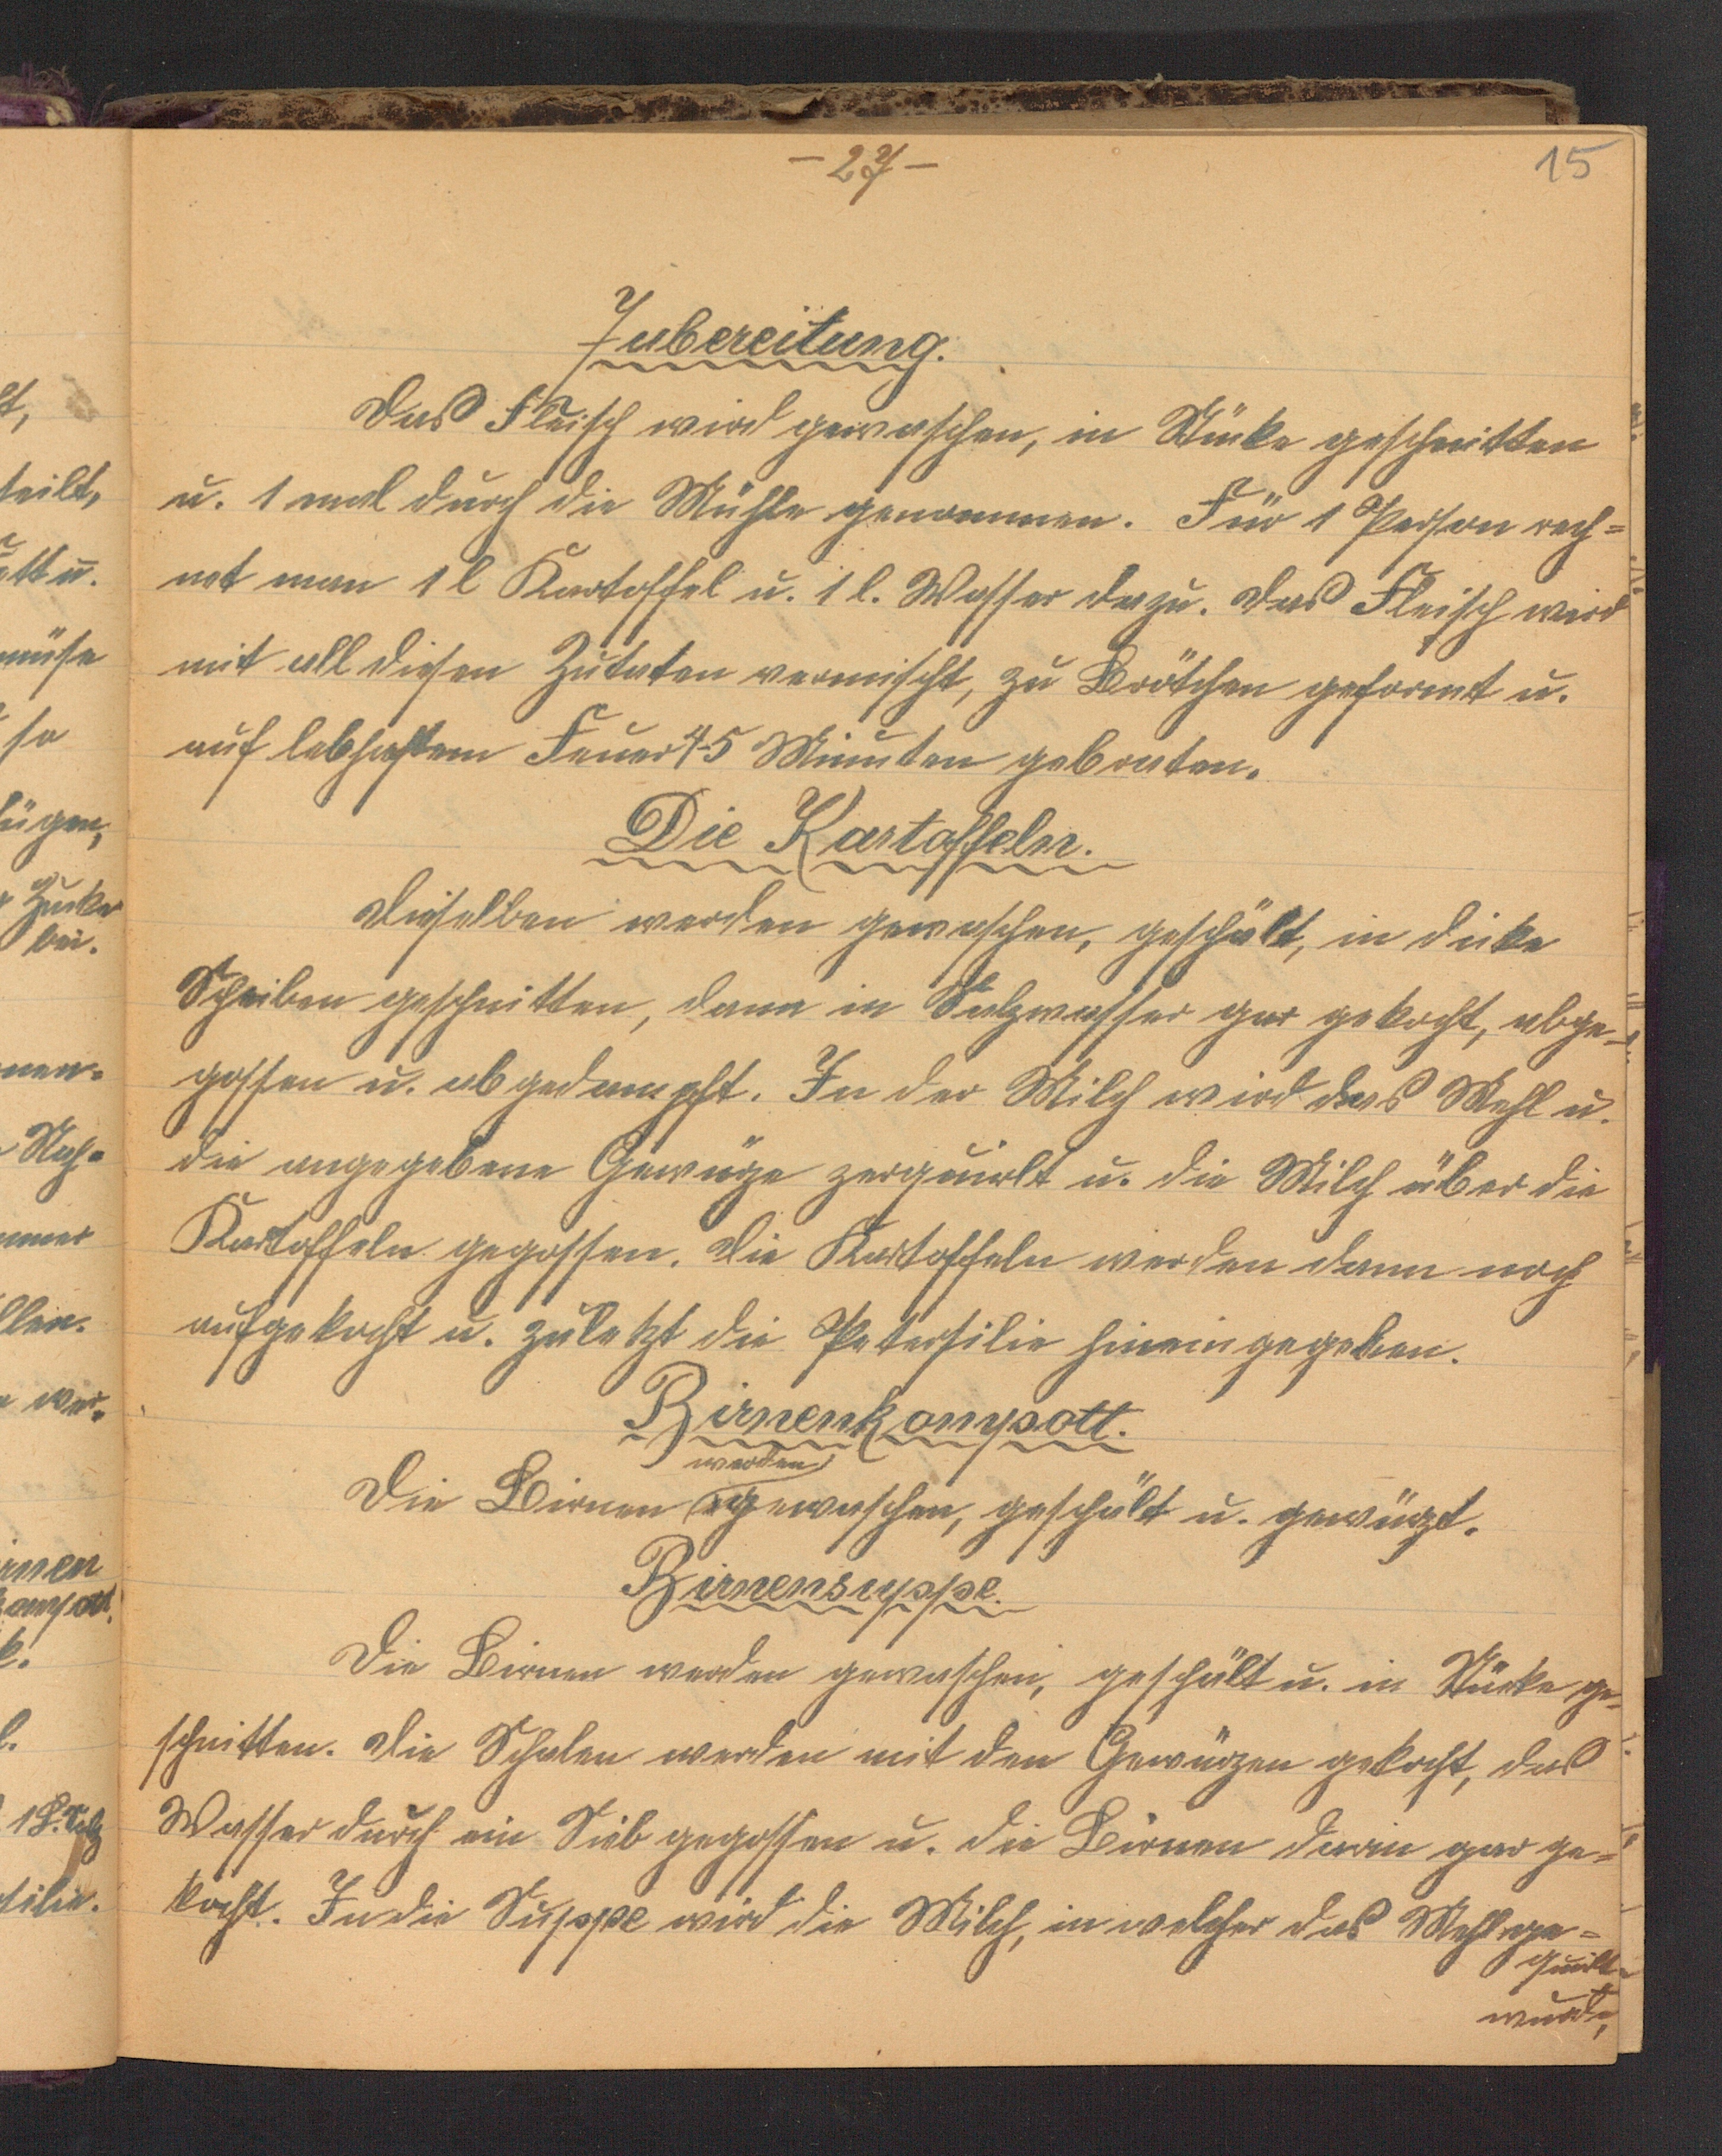 - 27 -
15
Zubereitung.
Das Fleisch wird gewaschen, in Stücke geschnitten
u. 1 mal durch die Mühle genommen. Für 1 Person rech=
net man 1 l Kartoffel u. 1 l. Wasser dazu. Das Fleisch wird
mit all diesen Zutaten vermischt, zu Brötchen geformt u.
auf lebhaftem Feuer 4-5 Minuten gebraten.
Die Kartoffeln.
Dieselben werden gewaschen, geschält, in dicke
Scheiben geschnitten, dann in Salzwasser gar gekocht, abge-
gossen u. abgedampft. In der Milch wird das Mehl u.
die angegebene Gewürze zerquirlt u. die Milch über die
Kartoffeln gegossen. Die Kartoffeln werden dann noch
aufgekocht u. zuletzt die Petersilie hineingegeben.
Birnenkompott.
werden
Die Birnen gewaschen, geschält u. gewürzt.
Birnensuppe.
Die Birnen werden gewaschen, geschält u. in Stücke ge-
schnitten. Die Schalen werden mit den Gewürzen gekocht, das
Wasser durch ein Sieb gegossen u. die Birnen darin gar ge=
kocht. In die Suppe wird die Milch, in welcher das Mehl ge=
quirlt
wurde,